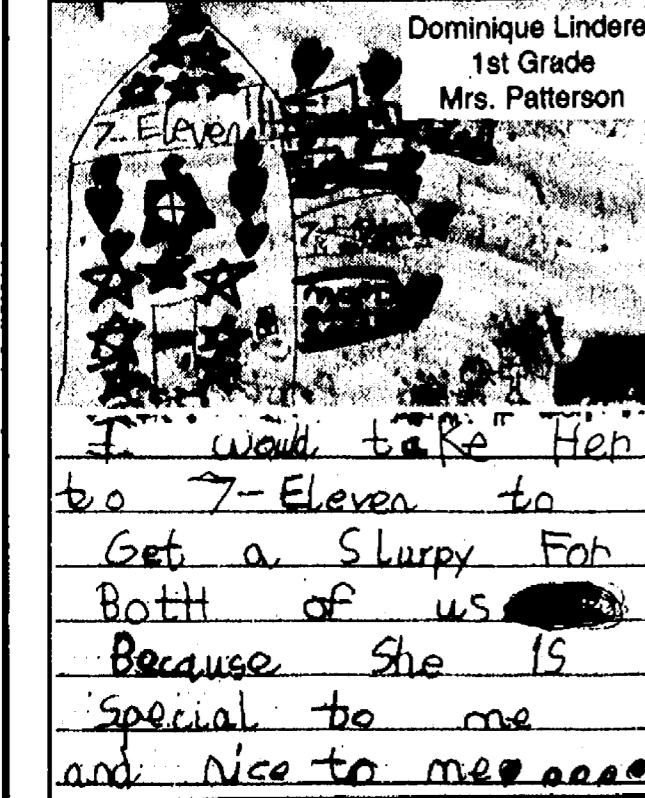 Dominique Lindere
1st Grade
Mrs. Patterson
7-Eleven
7-Eleven
I would take Her
to 7-Eleven to
Get a Slurpy For
Both of us
Because She Is
special to me
and nice to me....